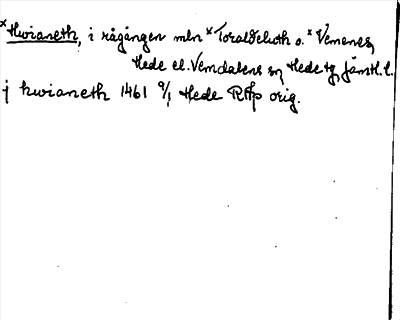 ×Hwianeth, i rågången mln ×Toraldehuth o. ×Vemenes,
Hede el. Vemdalens sn, Hede tg, Jämtl. l.
j hwianeth 1461 9/1 Hede RAp orig.